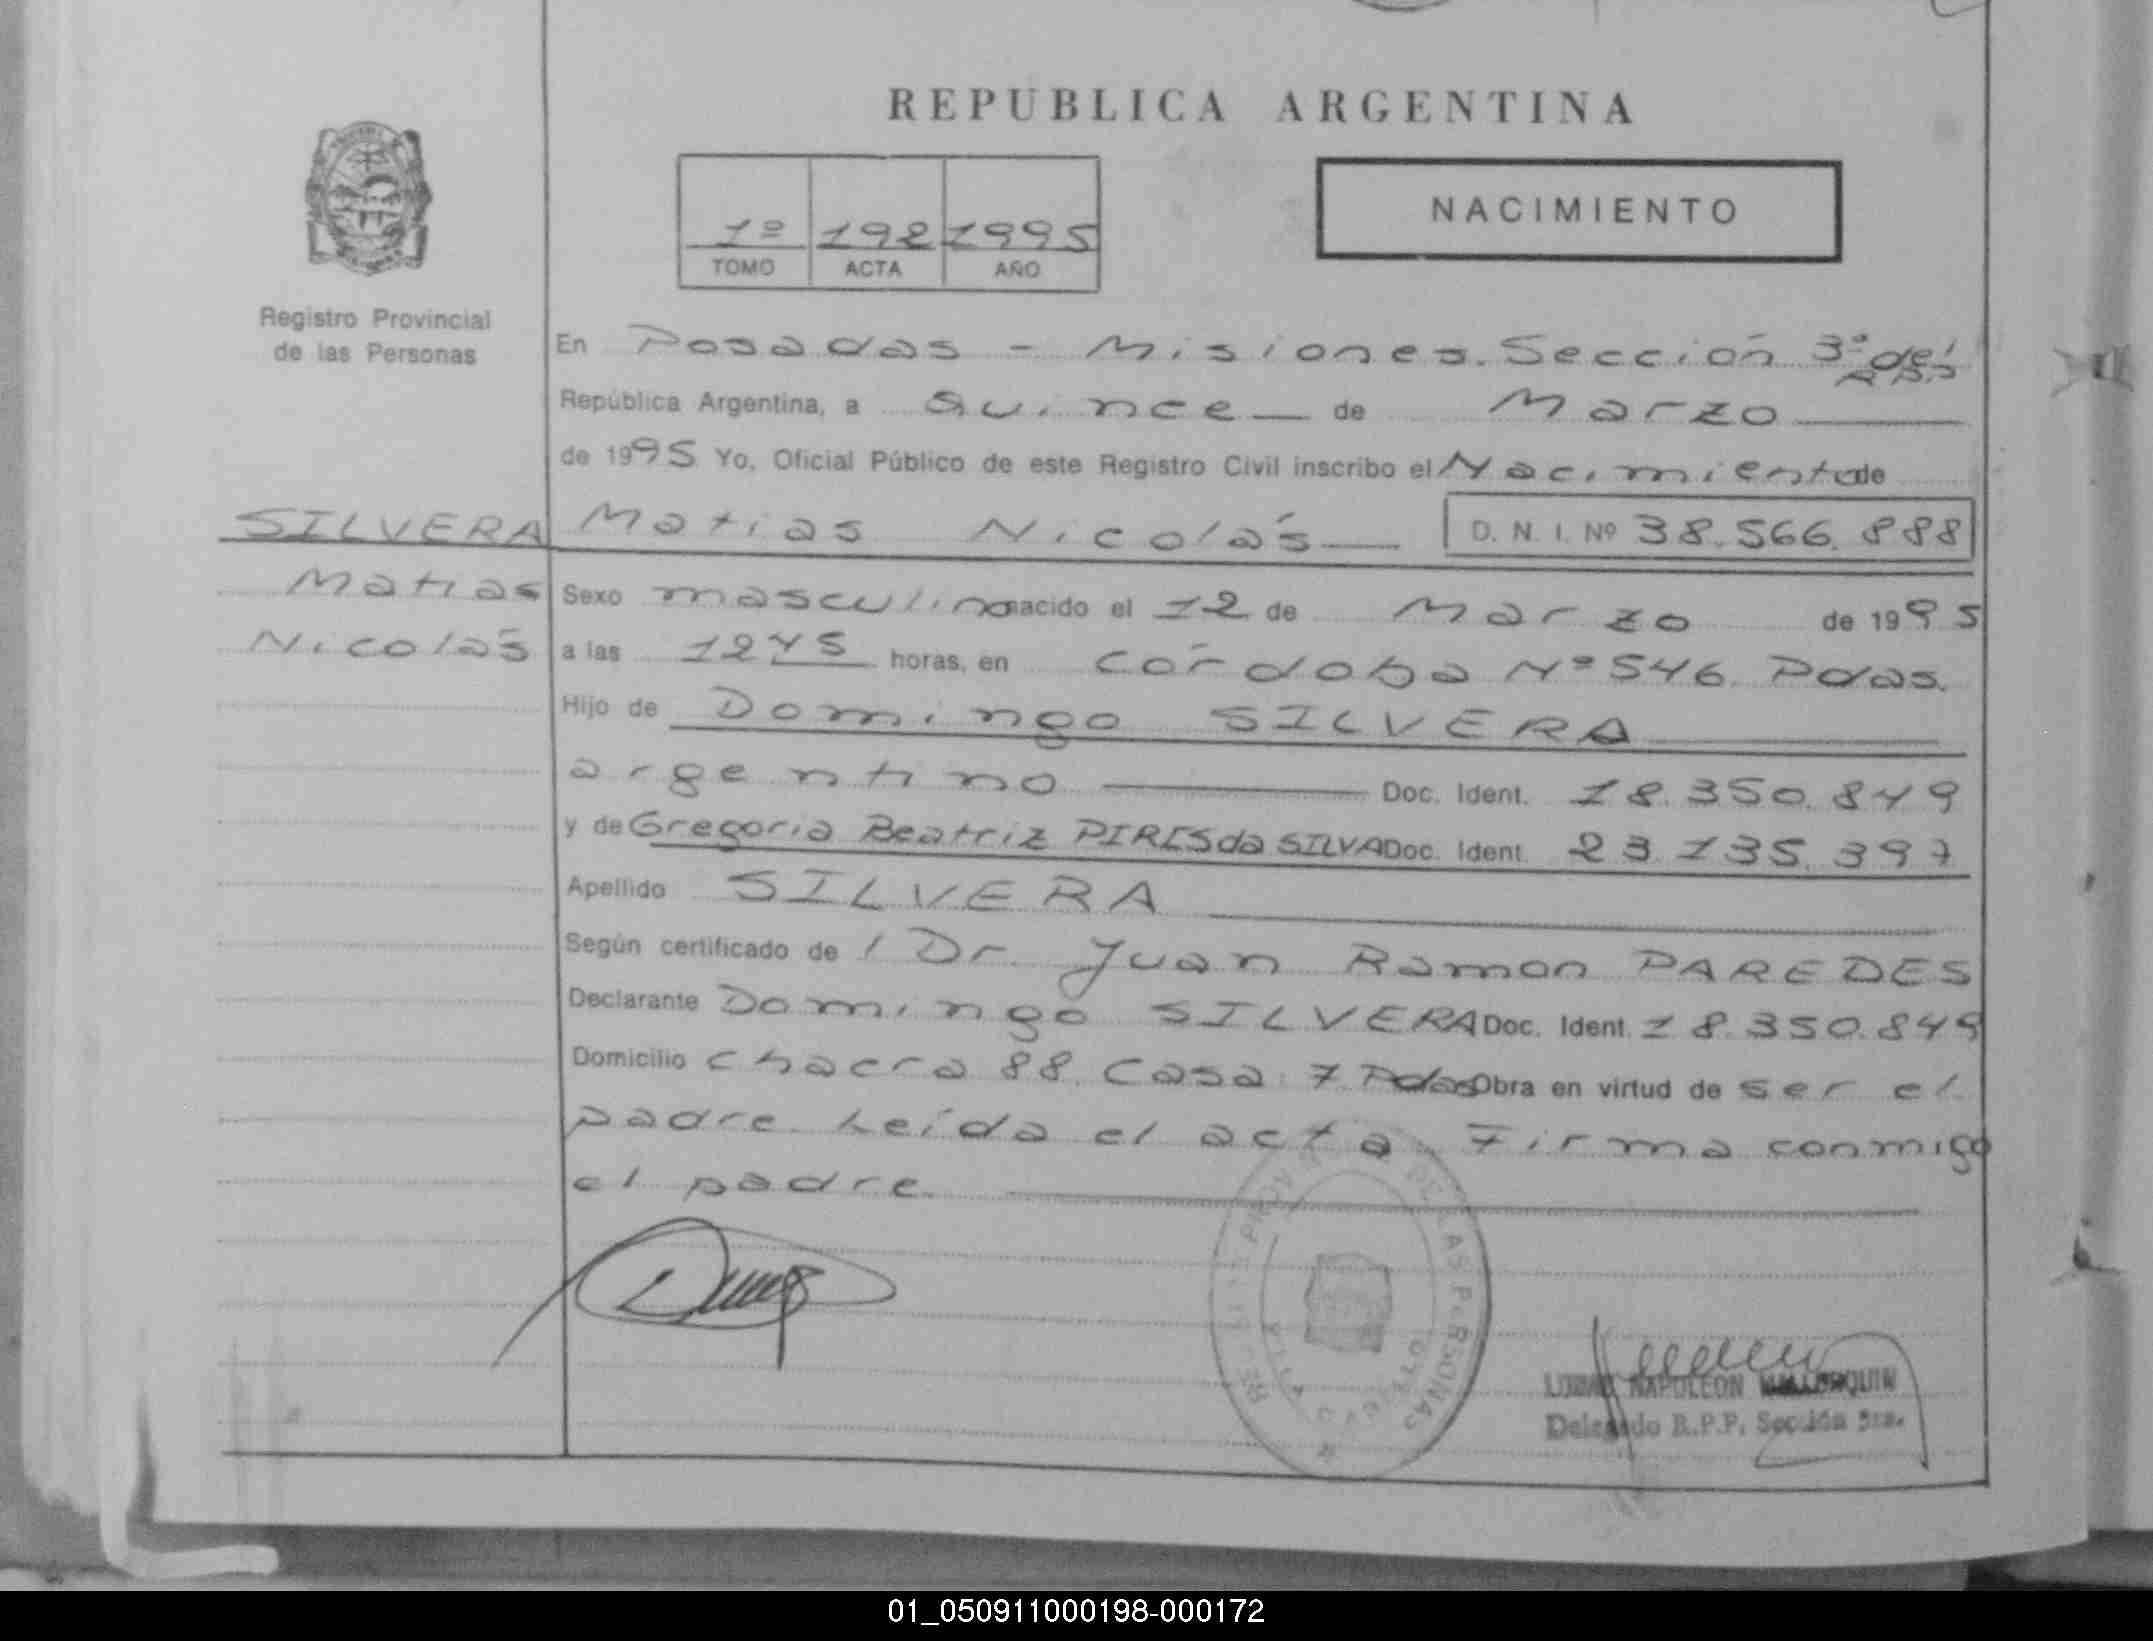 REPUBLICA ARGENTINA
NACIMIENTO
1º 192 1995
TOMO ACTA AÑO
Registro Provincial
de las Personas
En Posadas - Misiones. Sección 3º del
R.P.P.
República Argentina, a Quince de Marzo
de 1995 Yo, Oficial Público de este Registro Civil inscribo el Nacimiento de
SILVERA Matias Nicolás D. N. I. Nº 38.566.888
Matias
Nicolás
Sexo masculino nacido el 12 de Marzo de 1995
a las 1245 horas, en Córdoba Nº 546. Pdas.
Hijo de Domingo SILVERA
argentino Doc. Ident. 18.350.849
y de Gregoria Beatriz PIRES da SILVA Doc. Ident. 23.135.397
Apellido SILVERA
Según certificado de / Dr. Juan Ramon PAREDES
Declarante Domingo SILVERA Doc. Ident. 18.350.849
Domicilio Chacra 88. Casa 7 Pdas Obra en virtud de ser el
padre. Leída el acta Firma conmigo
el padre.
DE LAS PERSONAS
NAPOLEON
Delegado R.P.P. Sección 3ra.
01_050911000198-000172